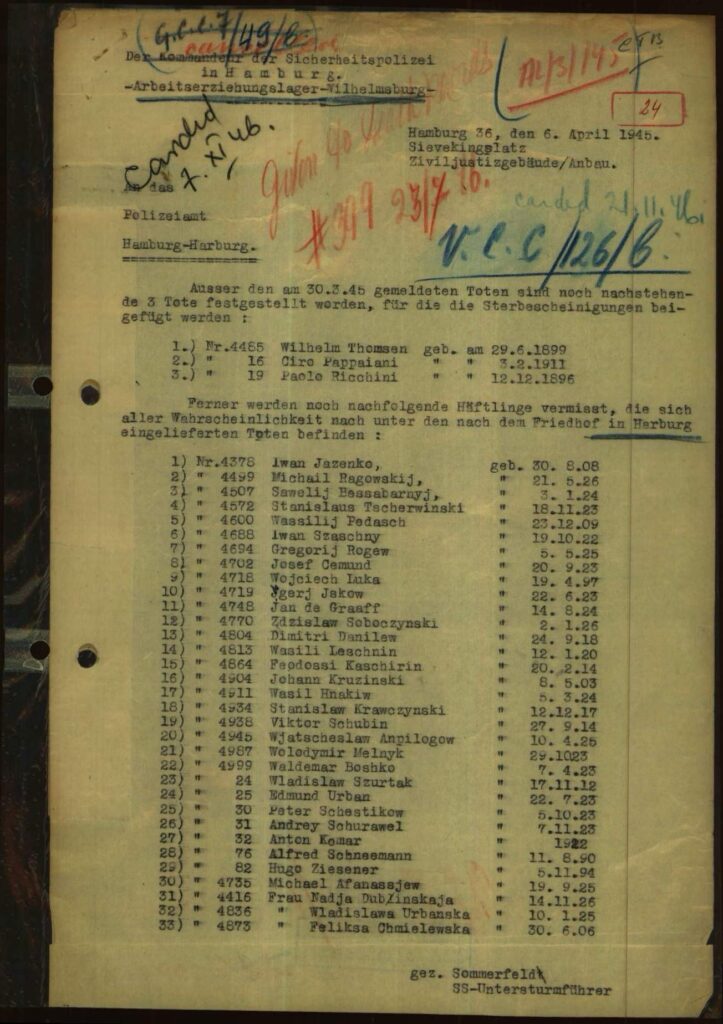 /49/6
Der Kommandeur der Sicherheitspolizei
in Hamburg.
-Arbeitserziehungslager-Wilhelmsburg-
24
Carded
7. XI 46.
Hamburg 36, den 6. April 1945.
Sievekingplatz
Ziviljustizgebäude/Anbau.
An das
Polizeiamt
Hamburg-Harburg.
23/7 46.
carded 21.11.46
V.C.C/126/6.
Ausser den am 30.3.45 gemeldeten Toten sind noch nachstehen-
de 3 Tote festgestellt worden, für die die Sterbescheinigungen bei-
gefügt werden :
1.) Nr.4485 Wilhelm Thomsen geb. am 29.6.1899
2.) " 16 Ciro Pappaiani " " 3.2.1911
3.) " 19 Paolo Ricchini " " 12.12.1896
Ferner werden noch nachfolgende Häftlinge vermisst, die sich
aller Wahrscheinlichkeit nach unter den nach dem Friedhof in Harburg
eingelieferten Toten befinden :
1) Nr.4378 Iwan Jazenko, geb. 30. 8.08
2) " 4499 Michail Ragowskij, " 21. 5.26
3) " 4507 Sawelij Bessabarnyj, " 3. 1.24
4) " 4572 Stanislaus Tscherwinski " 18.11.23
5) " 4600 Wassilij Pedasch " 23.12.09
6) " 4688 Iwan Szaschny " 19.10.22
7) " 4694 Gregorij Rogew " 5. 5.25
8) " 4702 Josef Cemund " 20. 9.23
9) " 4718 Wojciech Luka " 19. 4.97
10) " 4719 Jgerj Jakow " 22. 6.23
11) " 4748 Jan de Graaff " 14. 8.24
12) " 4770 Zdzislaw Soboczynski " 2. 1.26
13) " 4804 Dimitri Danilew " 24. 9.18
14) " 4813 Wasili Leschnin " 12. 1.20
15) " 4864 Feodossi Kaschirin " 20. 2.14
16) " 4904 Johann Kruzinski " 8. 5.03
17) " 4911 Wasil Hnakiw " 5. 3.24
18) " 4934 Stanislaw Krawczynski " 12.12.17
19) " 4938 Viktor Schubin " 27. 9.14
20) " 4945 Wjatscheslaw Anpilogow " 10. 4.25
21) " 4987 Wolodymir Melnyk " 29.1023
22) " 4999 Waldemar Boshko " 7. 4.23
23) " 24 Wladislaw Szurtak " 17.11.12
24) " 25 Edmund Urban " 22. 7.23
25) " 30 Peter Schestikow " 5.10.23
26) " 31 Andrey Schurawel " 7.11.23
27) " 32 Anton Komar " 1922
28) " 76 Alfred Schneemann " 11. 8.90
29) " 82 Hugo Ziesener " 5.11.94
30) " 4735 Michael Afanassjew " 19. 9.25
31) " 4416 Frau Nadja Dublinskaja " 14.11.26
32) " 4836 " Wladislawa Urbanska " 10. 1.25
33) " 4873 " Feliksa Chmielewska " 30. 6.06
gez. Sommerfeldt
SS-Untersturmführer